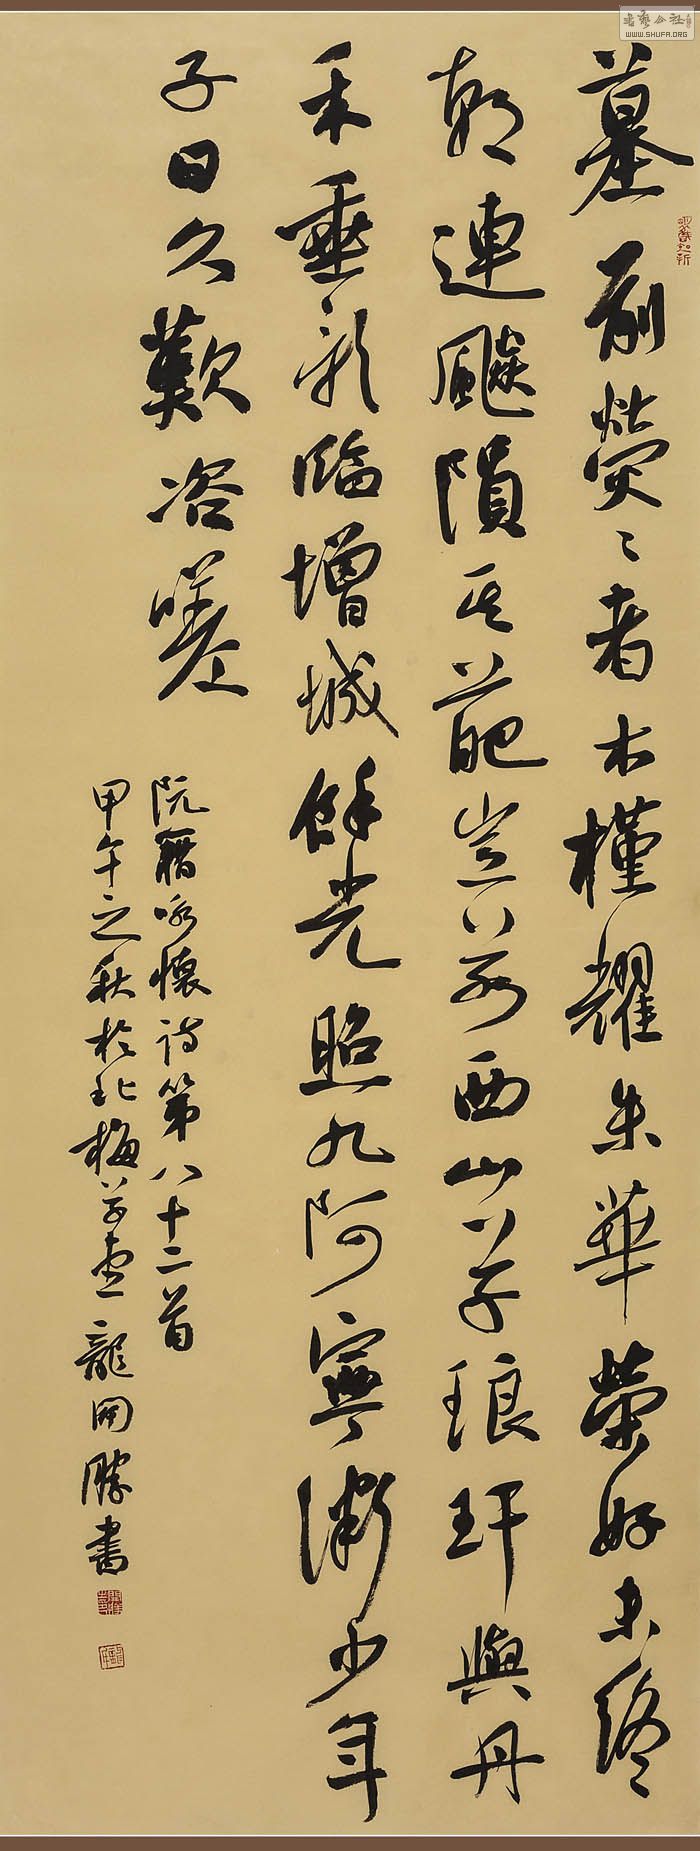 墓前熒熒者木槿耀朱華榮好未終
朝連飇隕其葩豈若西山草琅玕與丹
禾垂影臨增城餘光照九阿寧微少年
子日久歎咨嗟
阮籍咏懷詩第八十二首
甲午之秋於北梅草堂龍開勝書
WWW.SHUFA.ORG